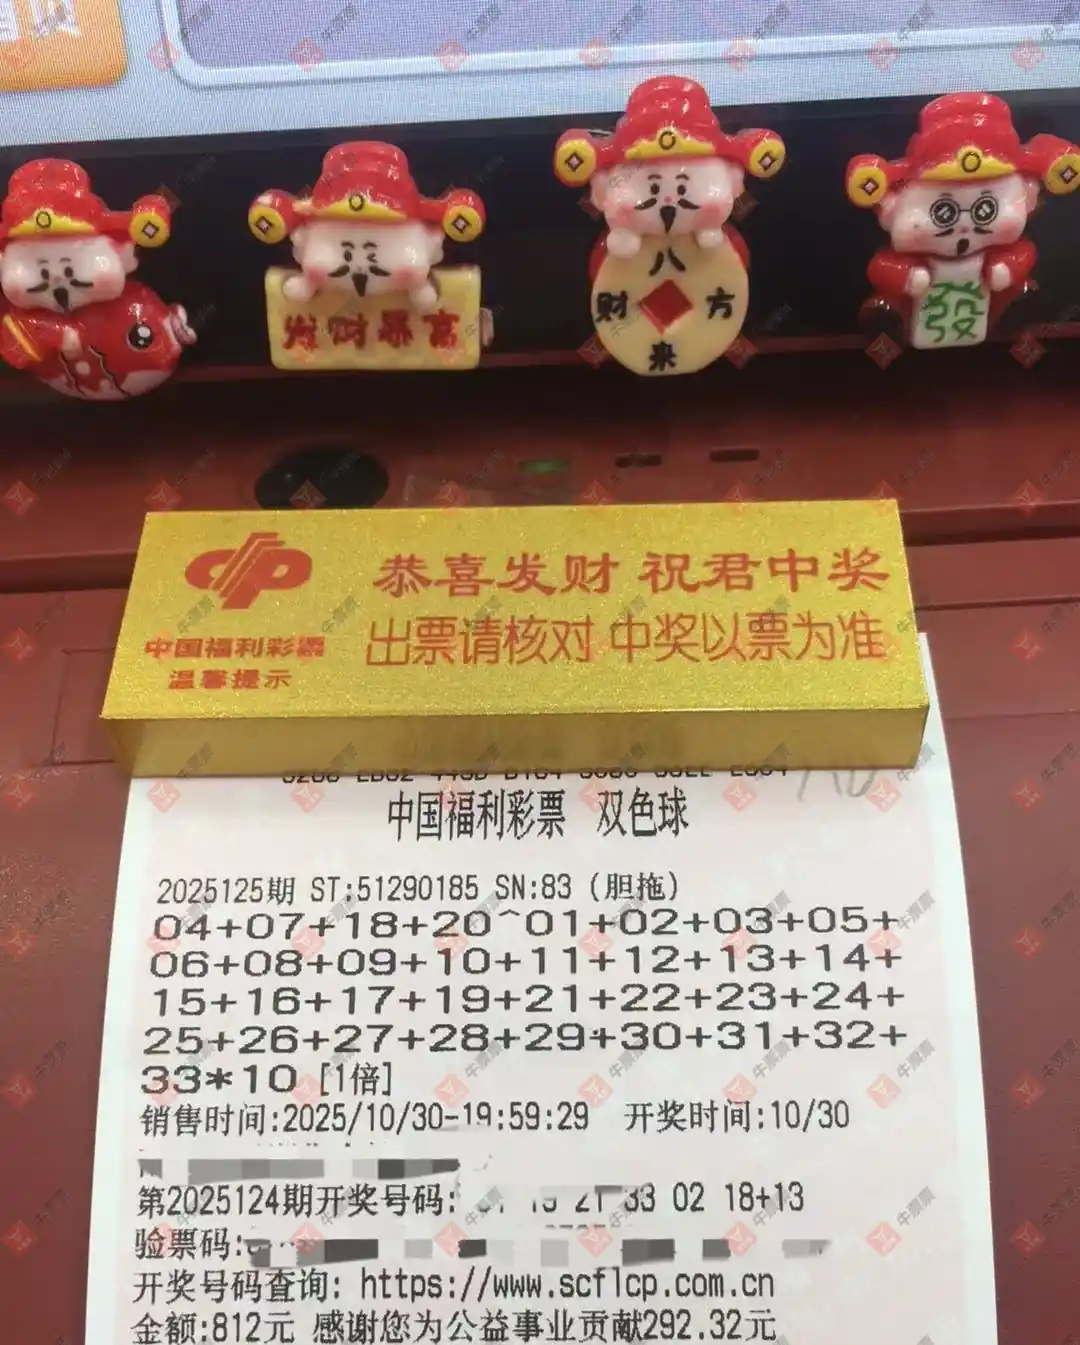 发财暴富
八方来财
發
恭喜发财 祝君中奖
出票请核对 中奖以票为准
中国福利彩票
温馨提示
中国福利彩票 双色球
2025125期 ST:51290185 SN:83 (胆拖)
04+07+18+20^01+02+03+05+
06+08+09+10+11+12+13+14+
15+16+17+19+21+22+23+24+
25+26+27+28+29+30+31+32+
33*10 [1倍]
销售时间:2025/10/30-19:59:29 开奖时间:10/30
第2025124期开奖号码: 21 33 02 18+13
验票码:
开奖号码查询: https://www.scflcp.com.cn
金额:812元 感谢您为公益事业贡献292.32元
牛票票